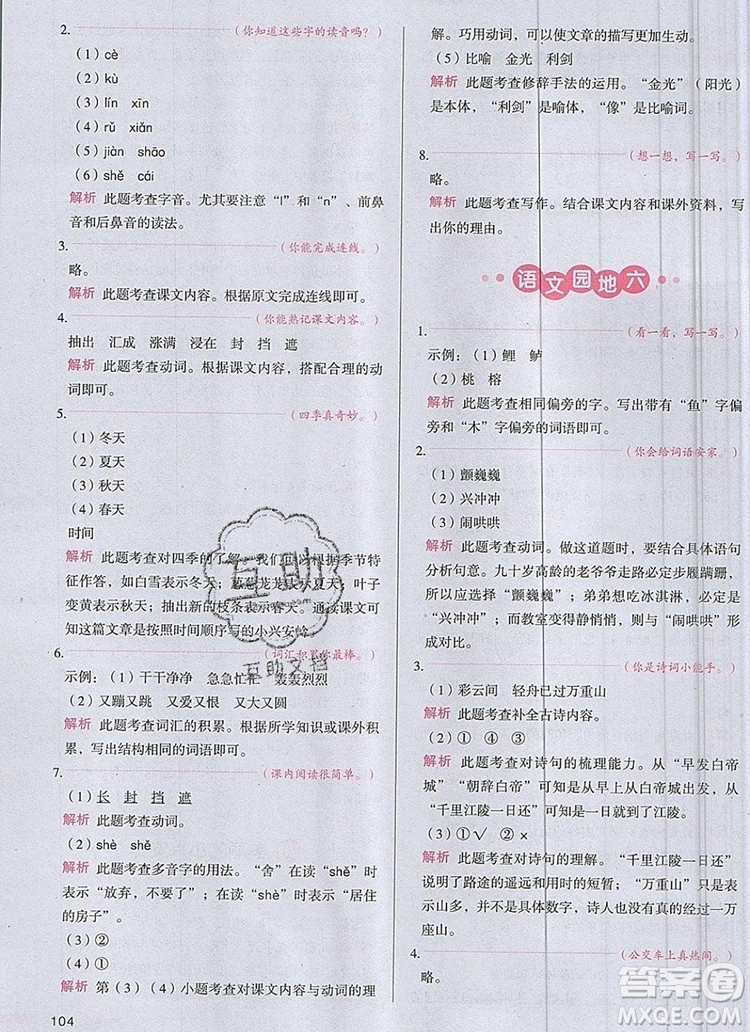 2.（你知道这些字的读音吗？）
（1）cè
（2）kù
（3）lín　xīn
（4）rǔ　xiǎn
（5）jiàn　shāo
（6）shě　cái
解析　此题考查字音。尤其要注意“l”和“n”、前鼻
音和后鼻音的读法。
3.（你能完成连线。）
略。
解析　此题考查课文内容。根据原文完成连线即可。
4.（你能熟记课文内容。）
抽出　汇成　涨满　浸在　封　挡　遮
解析　此题考查动词。根据课文内容，搭配合理的动
词即可。
5.（四季真奇妙。）
（1）冬天
（2）夏天
（3）秋天
（4）春天
时间
解析　此题考查对四季的了解。我们可以根据季节特
征作答，如白雪表示冬天；葱葱茏茏表示夏天；叶子
变黄表示秋天；抽出新的枝条表示春天。通读课文可
知这篇文章是按照时间顺序写的小兴安岭。
6.（词汇积累你最棒。）
示例：（1）干干净净　急急忙忙　轰轰烈烈
（2）又蹦又跳　又爱又恨　又大又圆
解析　此题考查词汇的积累。根据所学知识或课外积
累，写出结构相同的词语即可。
7.（课内阅读很简单。）
（1）长　封　挡　遮
解析　此题考查动词。
（2）shè　shě
解析　此题考查多音字的用法。“舍”在读“shě”时
表示“放弃，不要了”；在读“shè”时表示“居住
的房子”。
（3）②
（4）①
解析　第（3）（4）小题考查对课文内容与动词的理
104
解。巧用动词，可以使文章的描写更加生动。
（5）比喻　金光　利剑
解析　此题考查修辞手法的运用。“金光”（阳光）
是本体，“利剑”是喻体，“像”是比喻词。
8.（想一想，写一写。）
略。
解析　此题考查写作。结合课文内容和课外资料，写
出你的理由。
语文园地六
1.（看一看，写一写。）
示例：（1）鲤　鲈
（2）桃　榕
解析　此题考查相同偏旁的字。写出带有“鱼”字偏
旁和“木”字偏旁的词语即可。
2.（你会给词语安家。）
（1）颤巍巍
（2）兴冲冲
（3）闹哄哄
解析　此题考查动词。做这道题要结合具体语句
分析句意。九十岁高龄的老爷爷走路必定步履蹒跚，
所以应选“颤巍巍”；弟弟想吃冰淇淋，心情必定是
“兴冲冲”的；而教室变得静悄悄，与“闹哄哄”形
成对比。
3.（你是诗词小能手。）
（1）彩云间　轻舟已过万重山
解析　此题考查补全古诗内容。
（2）①　④　③　②
解析　此题考查对诗句的梳理能力。从“早发白帝
城”“朝辞白帝”可以知道诗人早上从白帝城出发；
从“千里江陵一日还”可以知道诗人傍晚到了江陵。
（3）①√　②×
解析　此题考查对诗句的理解。“千里江陵一日还”
说明了路途的遥远和用时的短暂；“万重山”只是表
示山多，并不是具体数字，诗人也不一定翻越了一万
座山。
4.（公交车上真热闹。）
略。
互助
互助文档
答案圈
MXQE.COM